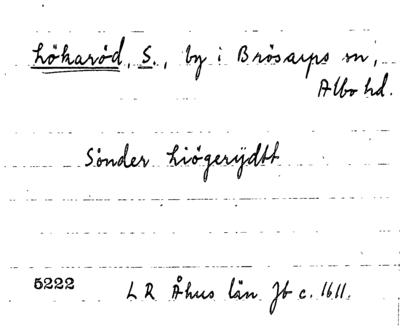 Hökaröd, S., by i Brösarps sn,
Albo hd.
Sönder hiögerÿdtt
5222 L R Åhus län Jb c. 1611.